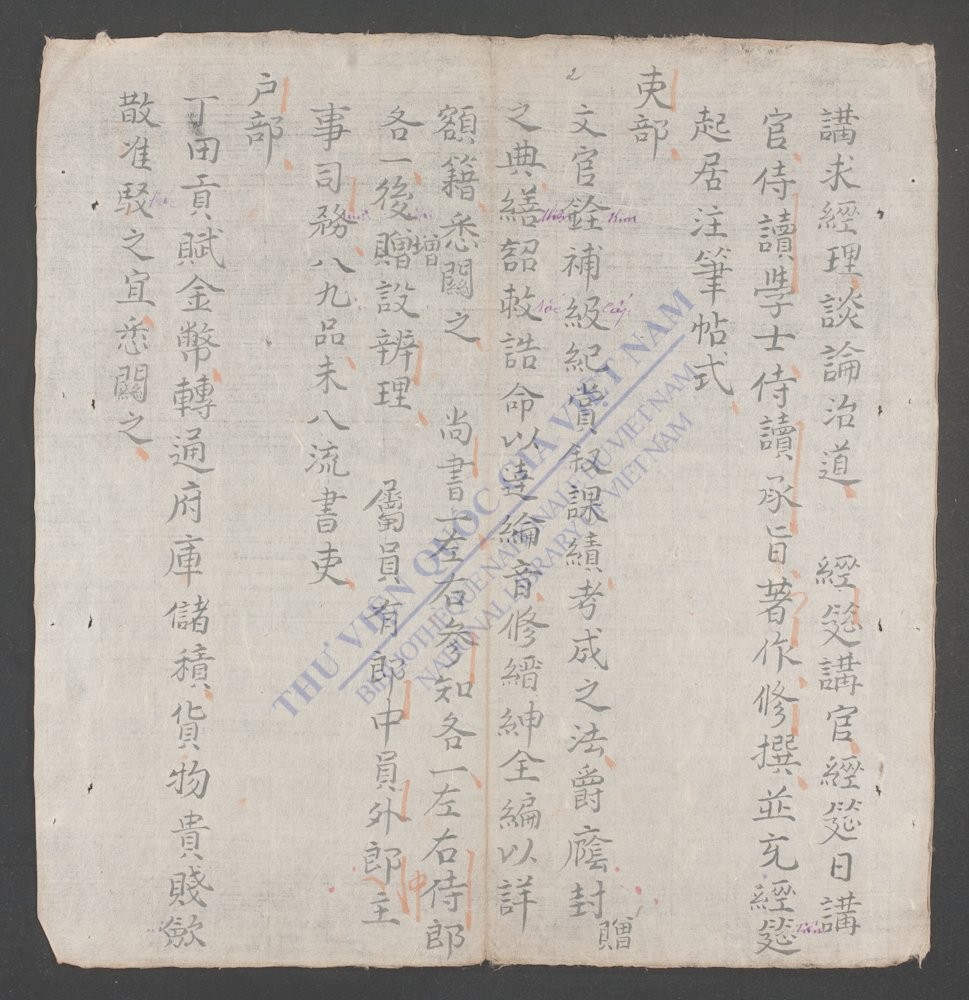 講求經理談論治道 經筵講官經筵日講
官侍讀學士侍讀承旨著作修撰並充經筵
起居注筆帖式
吏部
文官銓補級紀賞叙課績考成之法爵廕封贈
之典繕詔敕誥命以達綸音修縉紳全編以詳
額籍悉關之 尚書一左右參知各一左右侍郎
各一後贈設辨理 屬員有郎中員外郎主
增
中
事司務八九品未入流書吏
户部
丁田貢賦金幣轉通府庫儲積貨物貴賤歛
散准駁之宜悉關之
THƯ VIỆN QUỐC GIA VIỆT NAM
BIBLIOTHEQUE NATIONALE DU VIETNAM
NATIONAL LIBRARY OF VIETNAM